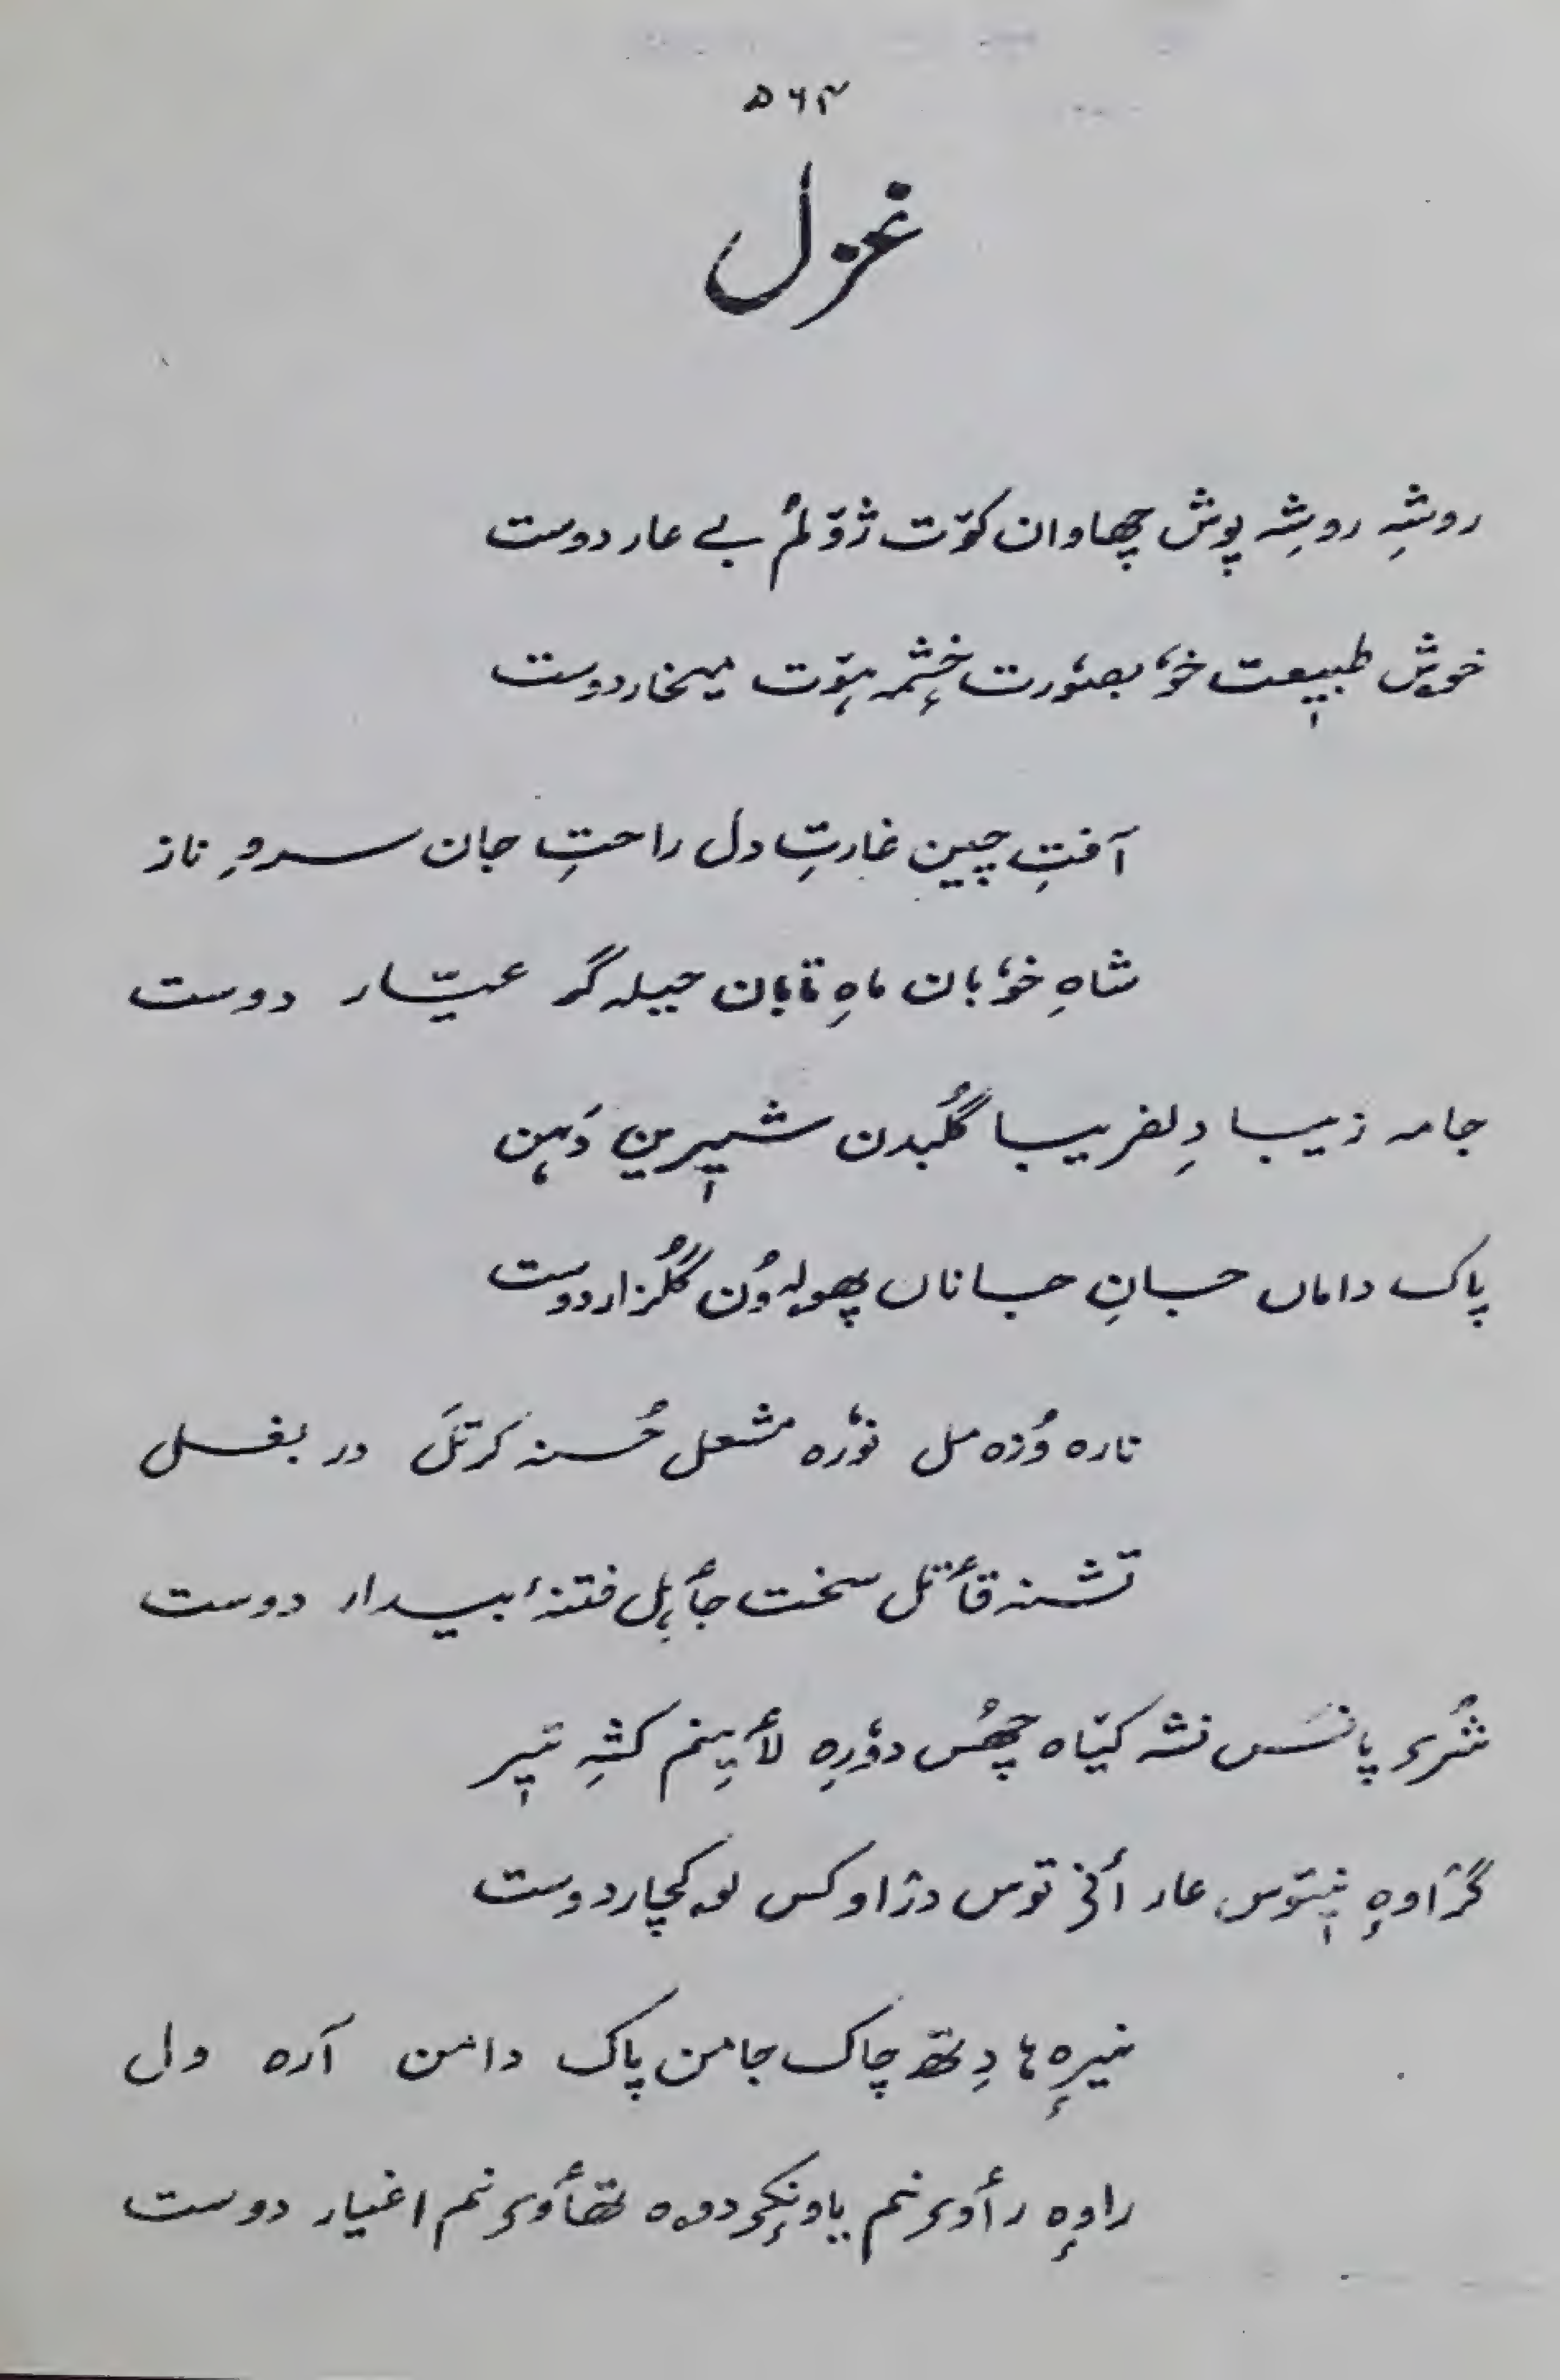 ۵۶۴
غزل
روشہِ روشہِ پوش چھاوان کوٚت ژوٚلُم بے عار دوست
خوش طبیٖعت خوٗبصوٗرت خٕشمہ ہوٚت میخار دوست
آفتِ چین غارتِ دل راحتِ جان سروِ ناز
شاہِ خوٗبان ماہِ تابان حیلہ گر عیّار دوست
جامہ زیبا دِلفریبا گُلبدن شیٖرین دَہن
پاک داماں جانِ جاناں پھولہ وُن گُلزار دوست
نارہ وُزہ مل نوٗرہ مشعل حُسنہ کرتَل در بغل
تشنہ قٲتل سخت جٲہِل فتنۂ بیدار دوست
شُرؠ پانَس نشہ کیٚاہ چھُس دوٗرِہ لٲیِنم کشہِ تیٖر
گژاوہٕ نیٖتوٚس عار أنؠ توس دژاوکس لہ کچار دوست
نیرٕہ ہا دِتھ چاک جامن پاک دامن آرہ ول
راوٕہ رٲوؠ نم یاونٕکؠ دۄہ تھٲوؠ نم اغیار دوست